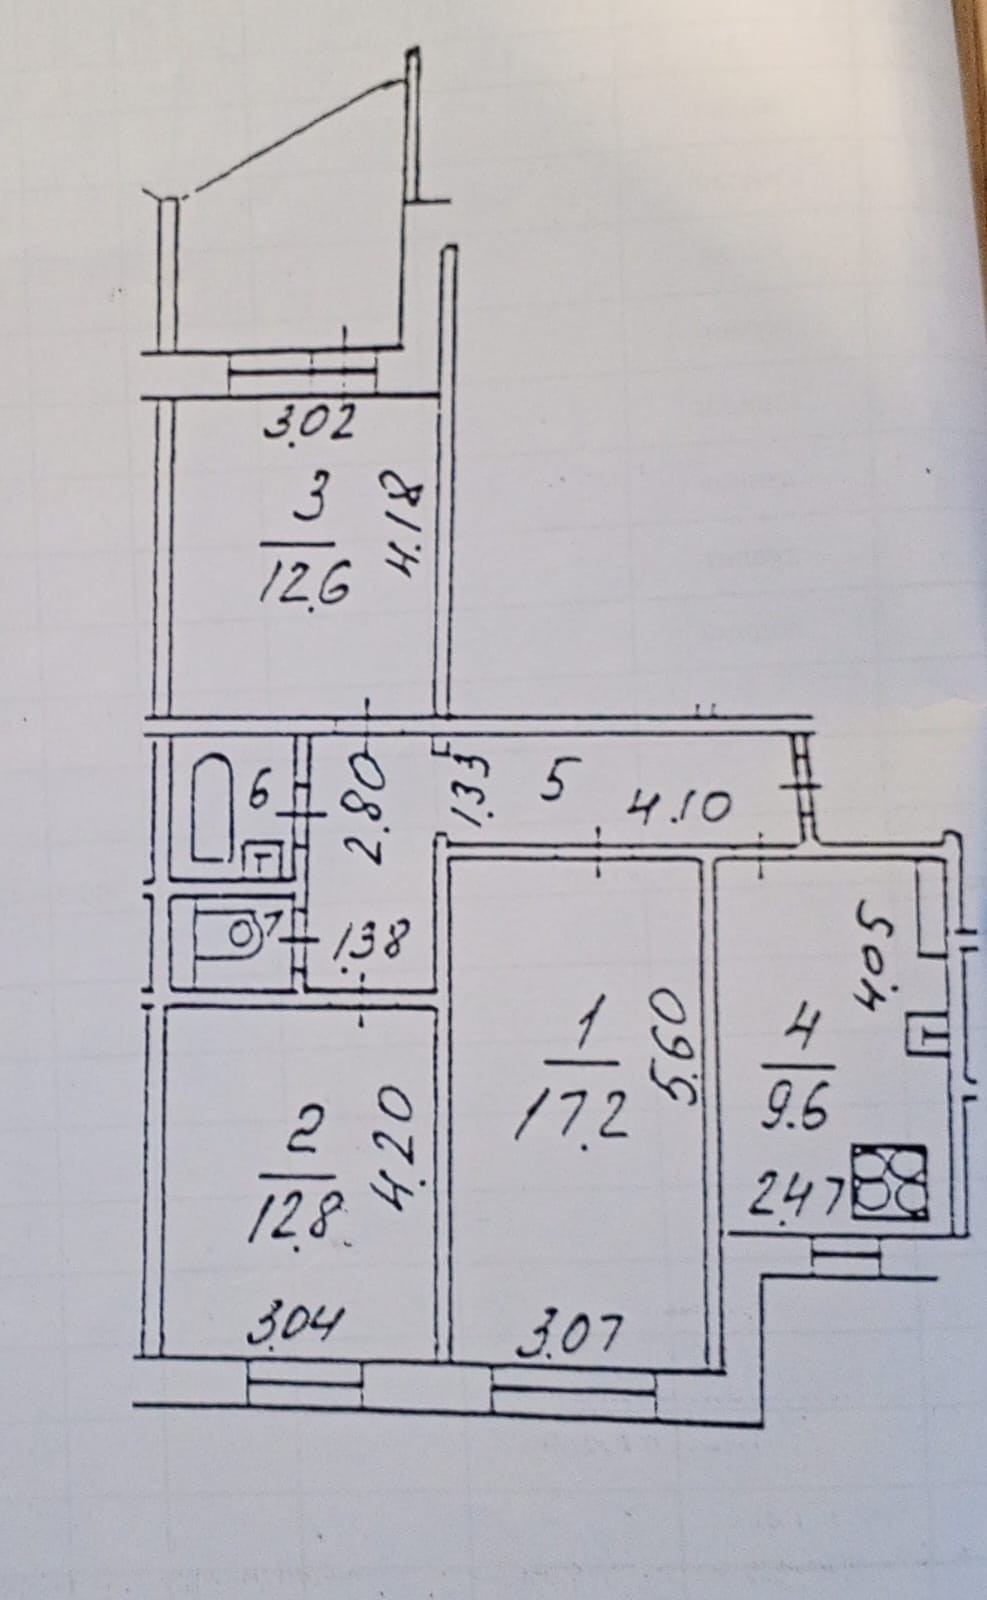 3.02
3
12.6
4.18
6
2.80
1.33
5
4.10
7
1.38
4.05
1
17.2
5.60
4
9.6
2
12.8
4.20
2.47
3.04
3.07